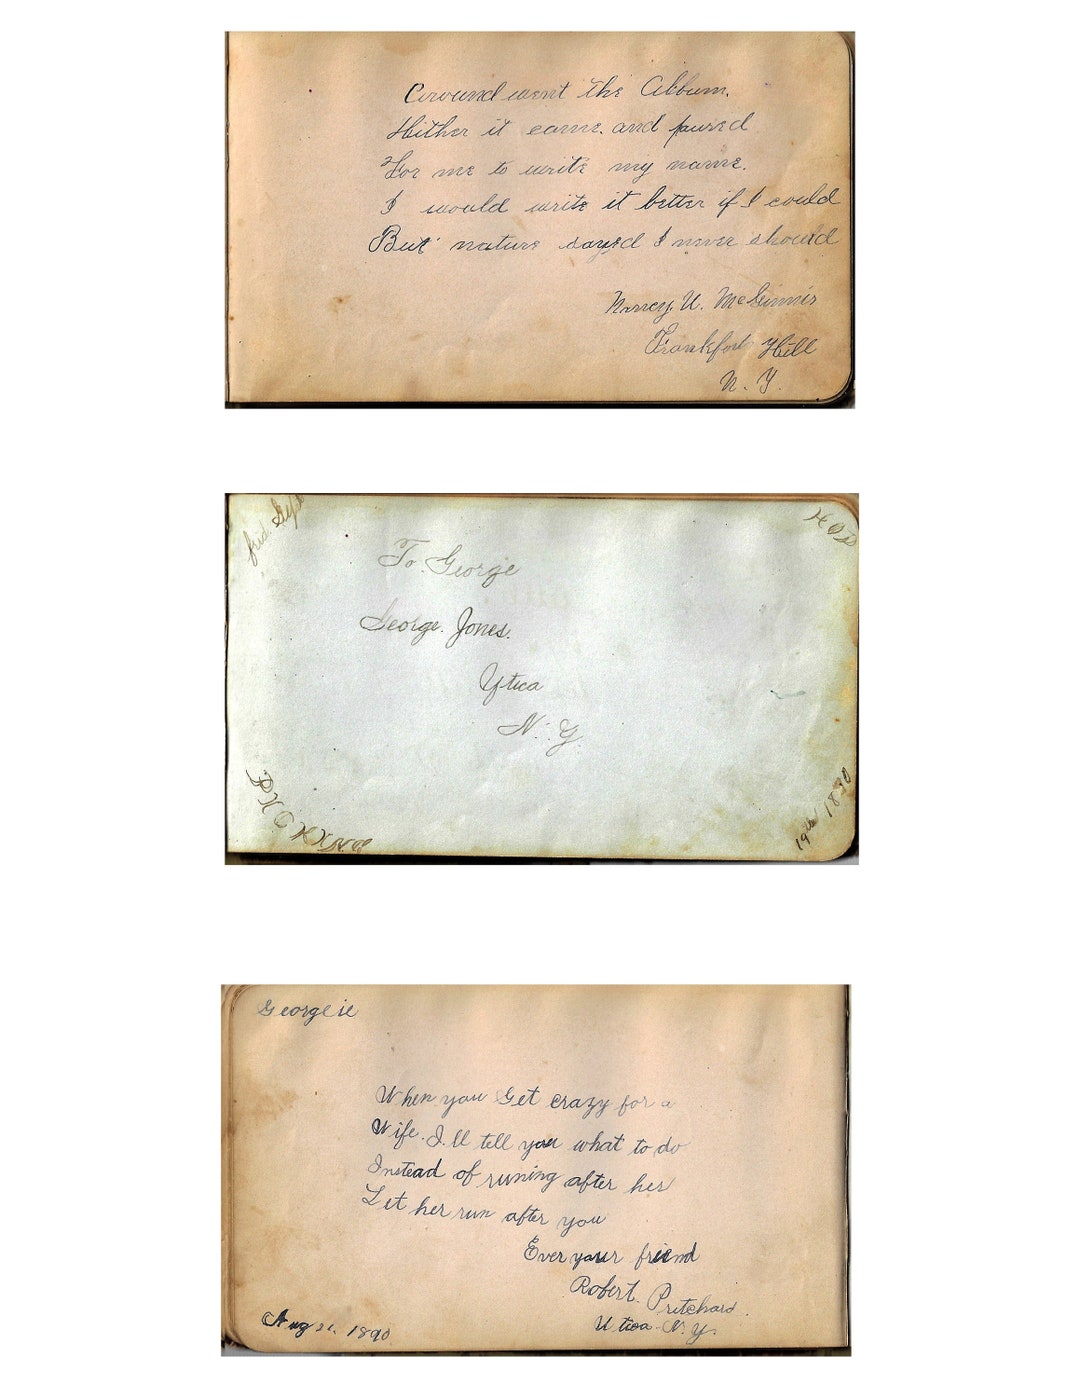 Around went the Album.
Hither it came. and paused
For me to write my name.
I would write it better if I could
But nature sayed I never should
Nancy. U. McGinnis
Frankfort Hill
N. Y.
To. George
George. Jones.
Utica
N. Y.
19th 1890
Georgeie
When you Get crazy for a
Wife. I.ll tell you what to do
Instead of runing after her
Let her run after you
Ever your friend
Robert. Pritchard.
Utica. N. Y.
Aug 21. 1890